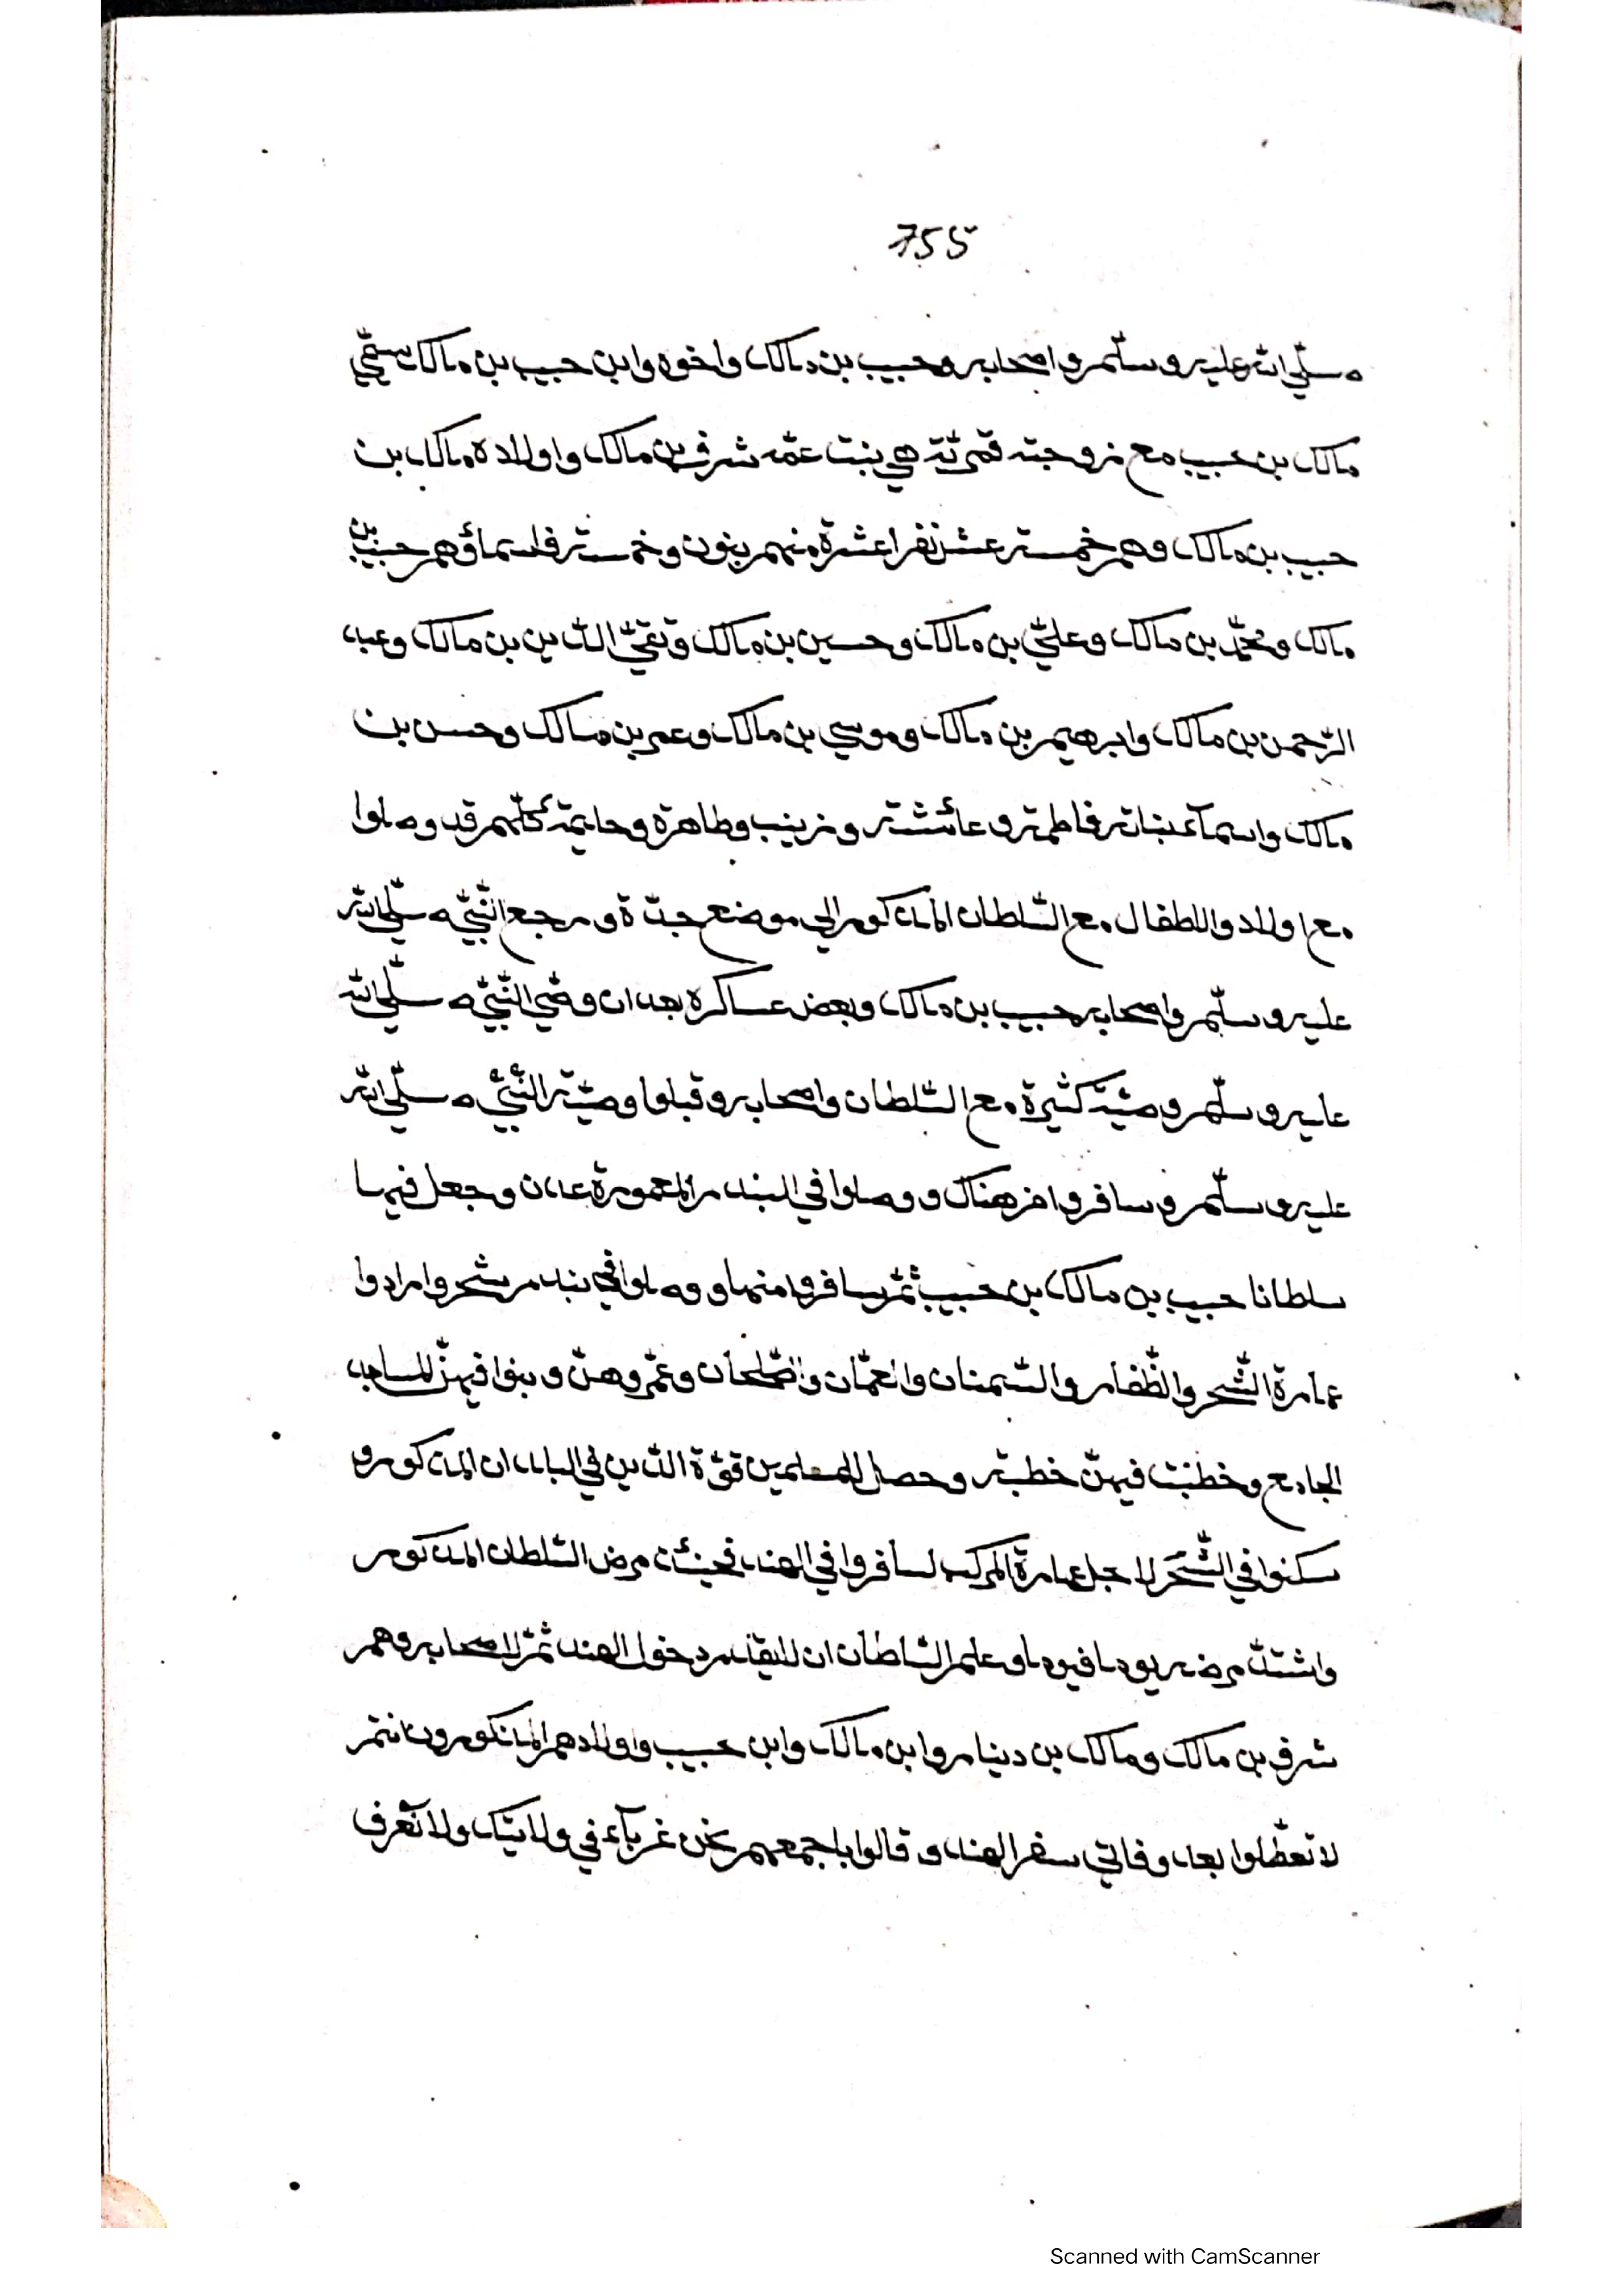 755
صلّي الله عليه وسلّم واصحابه وحبيب بن مالك واخوه وابن حبيب بن مالك سمّي
مالك بن حبيب مع زوجته قمريّة هي بنت عمّه شرف بن مالك واولاده مالك بن
حبيب بن مالك وهم خمسة عشر نفرا عشرة منهم بنون وخمسة فاسماؤهم حبيب بن
مالك ومحمّد بن مالك وعليّ بن مالك وحسين بن مالك وتقيّ الدّين بن مالك وعبد
الرّحمن بن مالك وابرهيم بن مالك وموسي بن مالك وعمر بن مالك وحسن بن
مالك واسمآء بناته فاطمة وعائشة وزينب وطاهرة وحليمة كلّهم قد وصلوا
مع اولاد والاطفال مع السّلطان المذكور الي موضع جدّة ومرجع النّبيّ صلّي الله
عليه وسلّم واصحابه حبيب بن مالك وبعض عساكره بعد ان وصّي النّبيّ صلّي الله
عليه وسلّم وصيّة كثيرة مع السّلطان واصحابه وقبلوا وصيّة النّبيّ صلّي الله
عليه وسلّم وسافروا من هناك ووصلوا في البندر المعمورة عدن وجعل فيها
سلطانا حبيب بن مالك بن حبيب ثمّ سافروا منها ووصلوا في بندر شحر وارادوا
عمارة الشّحر والظّفار والسّمنان والعمّان والصّلحان وعمّروهنّ وبنوا فيهنّ المساجد
الجامع وخطبت فيهنّ خطبة وحصل للمسلمين قوّة الدّين في البلدان المذكور و
سكنوا في الشّحر لاجل عمارة المركب لسافروا في الهند فحينئذ مرض السّلطان المذكور
واشتدّ مرضه يوما فيوما وعلم السّلطان ان لا يقدر دخول الهند ثمّ لاصحابه وهم
شرف بن مالك ومالك بن دينار وابن مالك وابن حبيب واولادهم المذكورون انتم
لا تعطّلوا بعد وفاتي سفر الهند وقالوا باجمعهم نحن غربآء في ولايتك ولا نعرف
Scanned with CamScanner